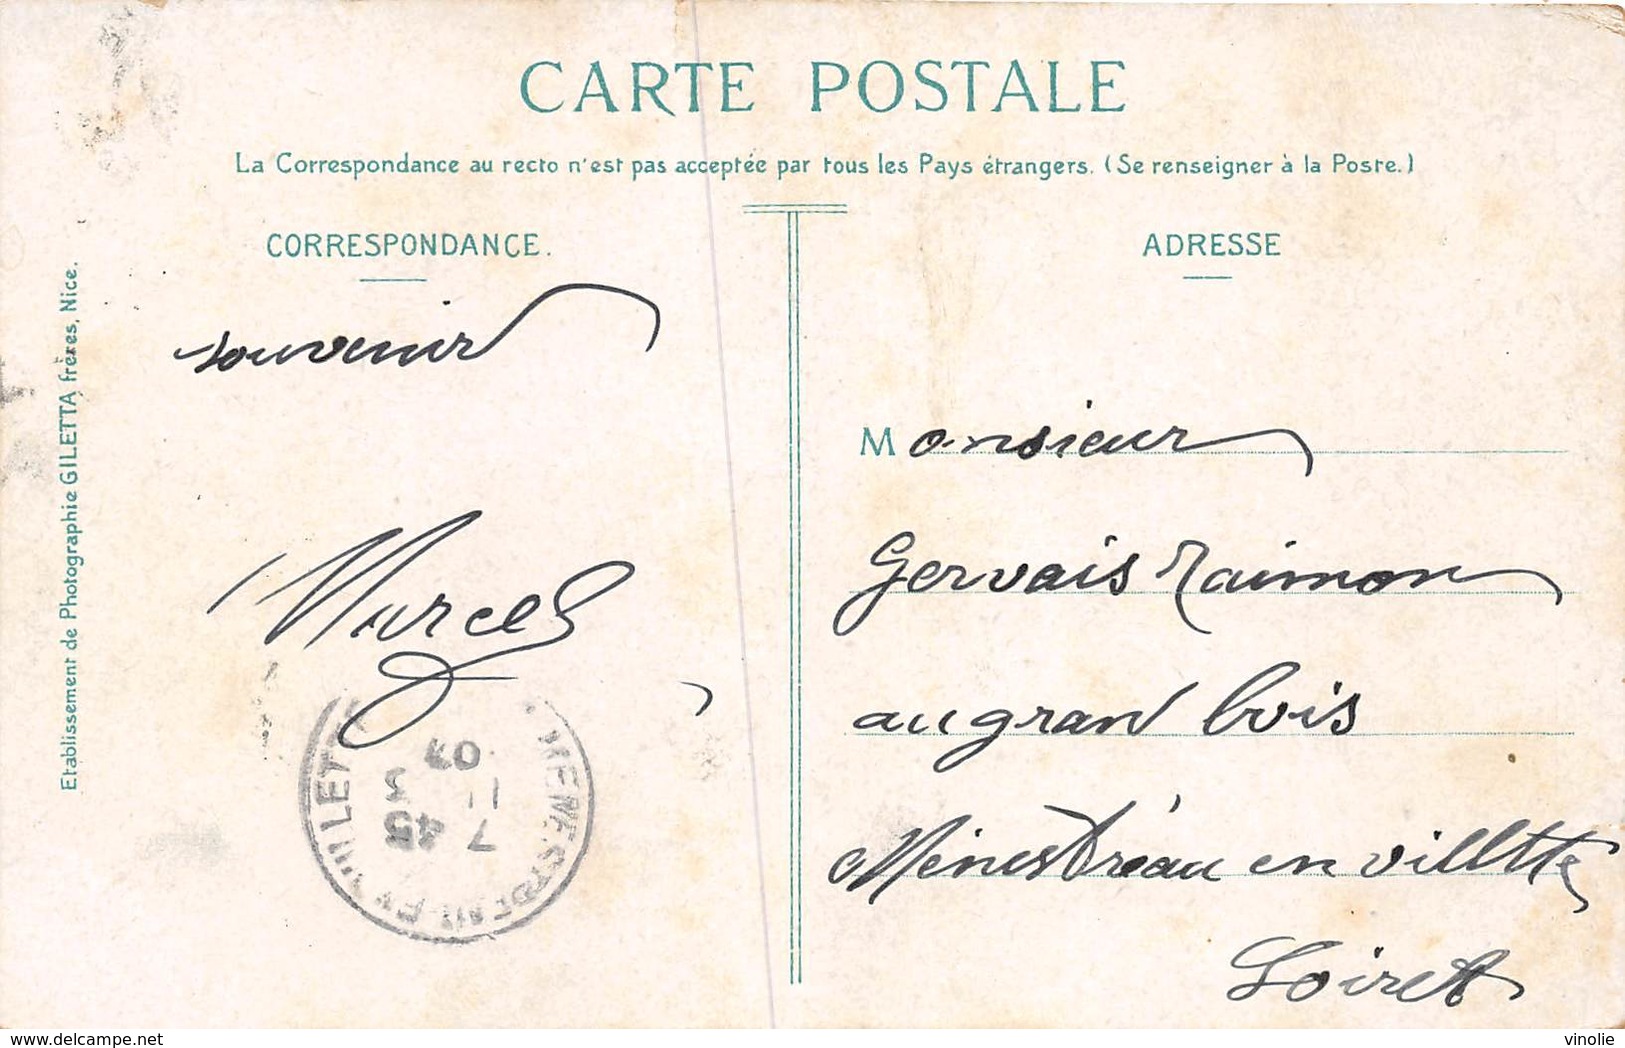 CARTE POSTALE
La Correspondance au recto n'est pas acceptée par tous les Pays étrangers. (Se renseigner à la Poste.)
CORRESPONDANCE.
souvenir
Marcel
ADRESSE
Monsieur
Gervais Raimon
au gran bois
Ménestréau en villette
Loiret
Etablissement de Photographie GILETTA frères, Nice.
MENESTREAU-EN-VILLETTE
7 45
11 3
07
www.delcampe.net
vinolie